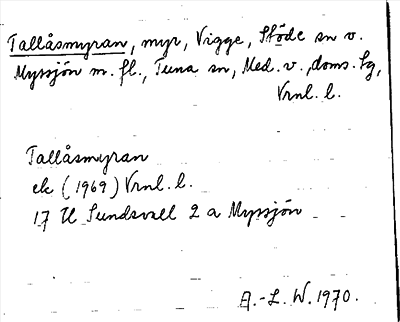 Tallåsmyran, myr, Vigge, Stöde sn v.
Myssjön m. fl., Tuna sn, Med. v., doms. sg,
Vrnl. l.
Tallåsmyran
ek (1969) Vrnl. l.
17 H Sundsvall 2 a Myssjön
A.-L. W. 1970.